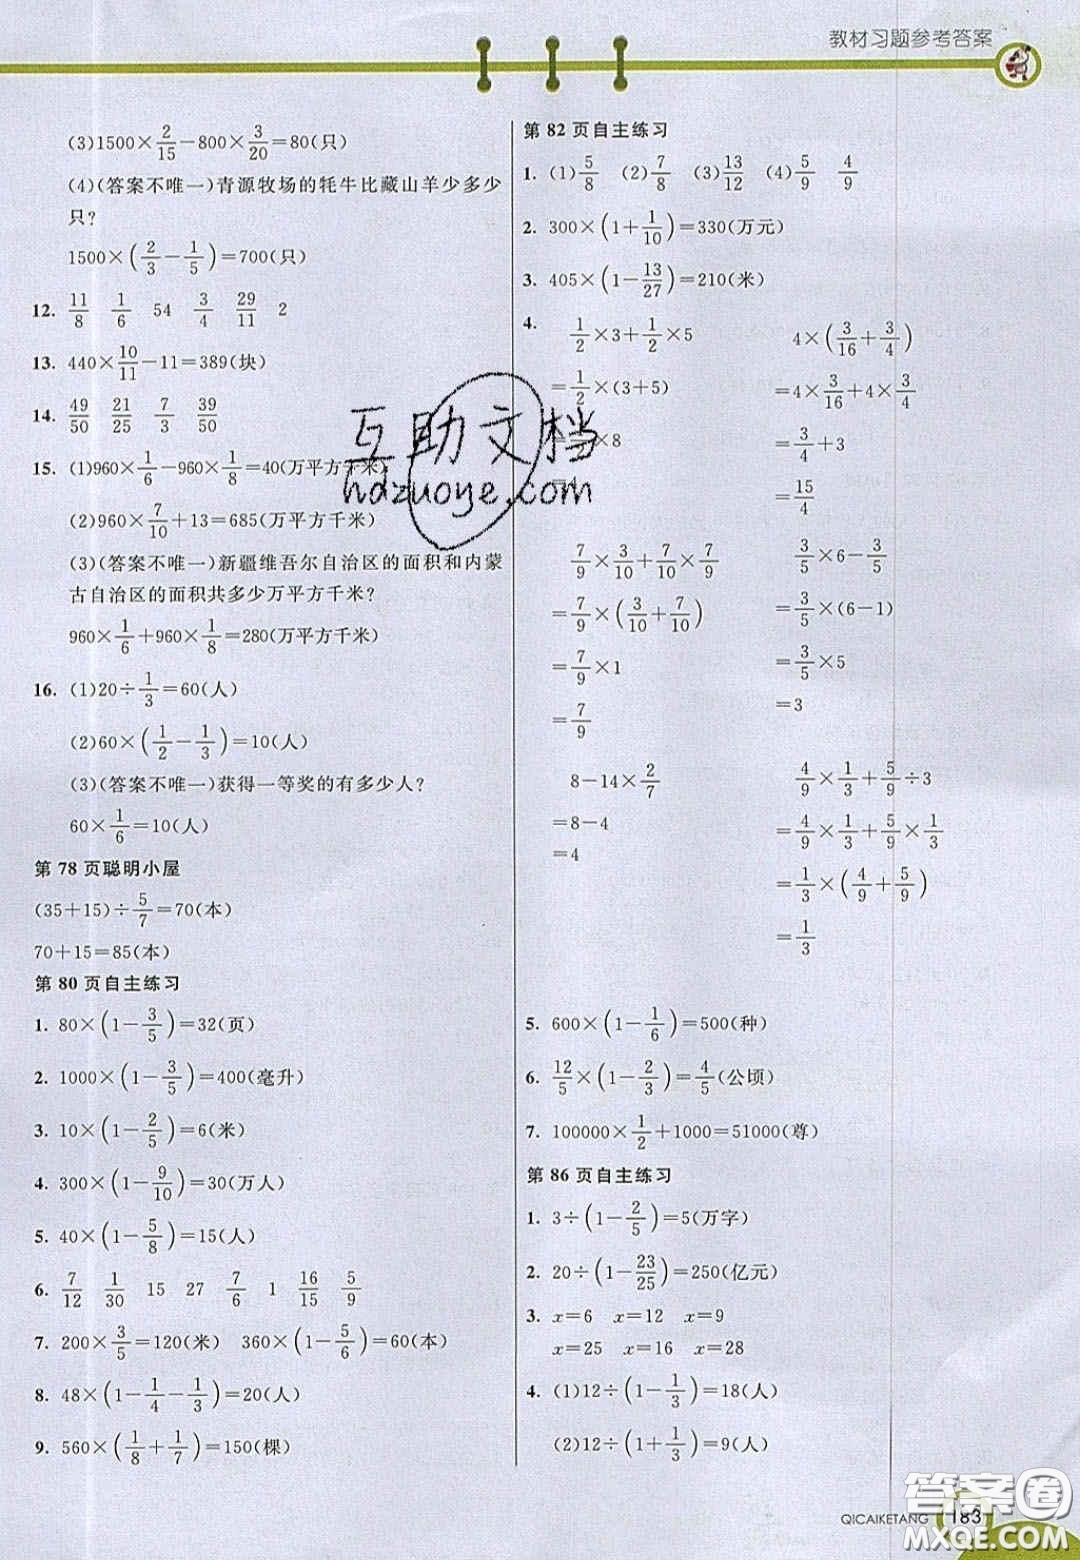 教材习题参考答案
(3)1500×2/15−800×3/20=80(只)
(4)(答案不唯一)青源牧场的牦牛比藏山羊少多少
只?
1500×(2/3−1/5)=700(只)
12. 11/8 1/6 54 3/4 29/11 2
13. 440×10/11−11=389(块)
14. 49/50 21/25 7/3 39/50
15. (1)960×1/6−960×1/8=40(万平方千米)
(2)960×7/10+13=685(万平方千米)
(3)(答案不唯一)新疆维吾尔自治区的面积和内蒙
古自治区的面积共多少万平方千米?
960×1/6+960×1/8=280(万平方千米)
16. (1)20÷1/3=60(人)
(2)60×(1/2−1/3)=10(人)
(3)(答案不唯一)获得一等奖的有多少人?
60×1/6=10(人)
第 78 页聪明小屋
(35+15)÷5/7=70(本)
70+15=85(本)
第 80 页自主练习
1. 80×(1−3/5)=32(页)
2. 1000×(1−3/5)=400(毫升)
3. 10×(1−2/5)=6(米)
4. 300×(1−9/10)=30(万人)
5. 40×(1−5/8)=15(人)
6. 7/12 1/30 15 27 7/6 1 16/15 5/9
7. 200×3/5=120(米) 360×(1−5/6)=60(本)
8. 48×(1−1/4−1/3)=20(人)
9. 560×(1/8+1/7)=150(棵)
第 82 页自主练习
1. (1)5/8 (2)7/8 (3)13/12 (4)5/9 4/9
2. 300×(1+1/10)=330(万元)
3. 405×(1−13/27)=210(米)
4. 1/2×3+1/2×5
=1/2×(3+5)
×8
=
4×(3/16+3/4)
=4×3/16+4×3/4
=3/4+3
=15/4
7/9×3/10+7/10×7/9
=7/9×(3/10+7/10)
=7/9×1
=7/9
3/5×6−3/5
=3/5×(6−1)
=3/5×5
=3
8−14×2/7
=8−4
=4
4/9×1/3+5/9÷3
=4/9×1/3+5/9×1/3
=1/3×(4/9+5/9)
=1/3
5. 600×(1−1/6)=500(种)
6. 12/5×(1−2/3)=4/5(公顷)
7. 100000×1/2+1000=51000(尊)
第 86 页自主练习
1. 3÷(1−2/5)=5(万字)
2. 20÷(1−23/25)=250(亿元)
3. x=6 x=12 x=9
x=25 x=16 x=28
4. (1)12÷(1−1/3)=18(人)
(2)12÷(1+1/3)=9(人)
互助文档
hdzuoye.com
QICAIKETANG 183
答案圈
MXQE.COM